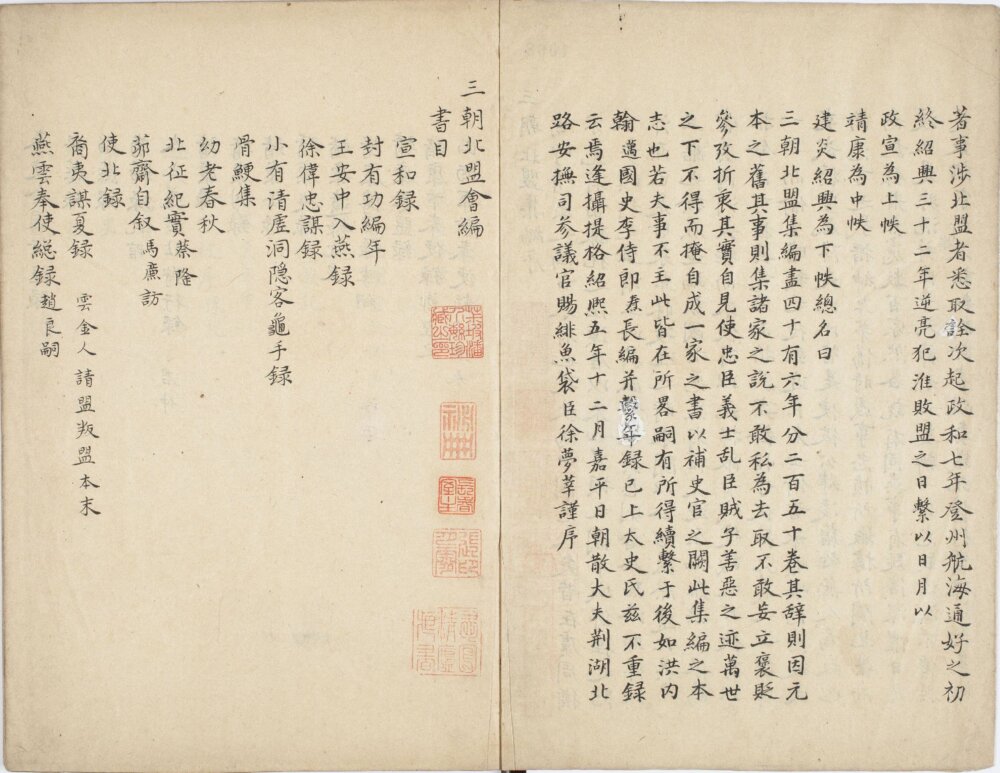 著事涉北盟者悉取詮次起政和七年登州航海通好之初
終紹興三十二年逆亮犯淮敗盟之日繫以日月以
政宣為上帙
靖康為中帙
建炎紹興為下帙總名曰
三朝北盟集編盡四十有六年分二百五十卷其辞則因元
本之舊其事則集諸家之說不敢私為去取不敢妄立褒貶
參攷折衷其實自見使忠臣義士乱臣賊子善惡之迹萬世
之下不得而掩自成一家之書以補史官之闕此集編之本
志也若夫事不主此皆在所畧嗣有所得續繫于後如洪内
翰邁國史李侍郎燾長編并繫年録已上太史氏兹不重録
云焉逢攝提格紹熙五年十二月嘉平日朝散大夫荆湖北
路安撫司參議官賜緋魚袋臣徐夢莘謹序
三朝北盟會編
書目
宣和録
封有功編年
王安中入燕録
徐偉忠謀録
小有清虛洞隐客龜手録
骨鯁集
幼老春秋
北征紀實蔡隆
茆齋自叙馬廉訪
使北録
裔夷謀夏録 雲金人請盟叛盟本末
燕雲奉使総録趙良嗣